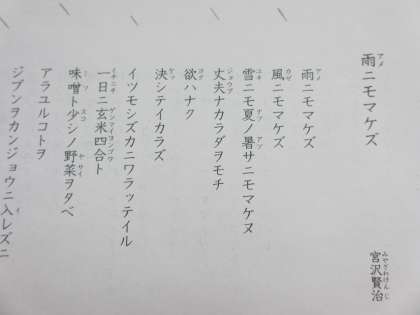 雨ニモマケズ
宮沢賢治
雨ニモマケズ
風ニモマケズ
雪ニモ夏ノ暑サニモマケヌ
丈夫ナカラダヲモチ
欲ハナク
決シテイカラズ
イツモシズカニワラッテイル
一日ニ玄米四合ト
味噌ト少シノ野菜ヲタベ
アラユルコトヲ
ジブンヲカンジョウニ入レズニ